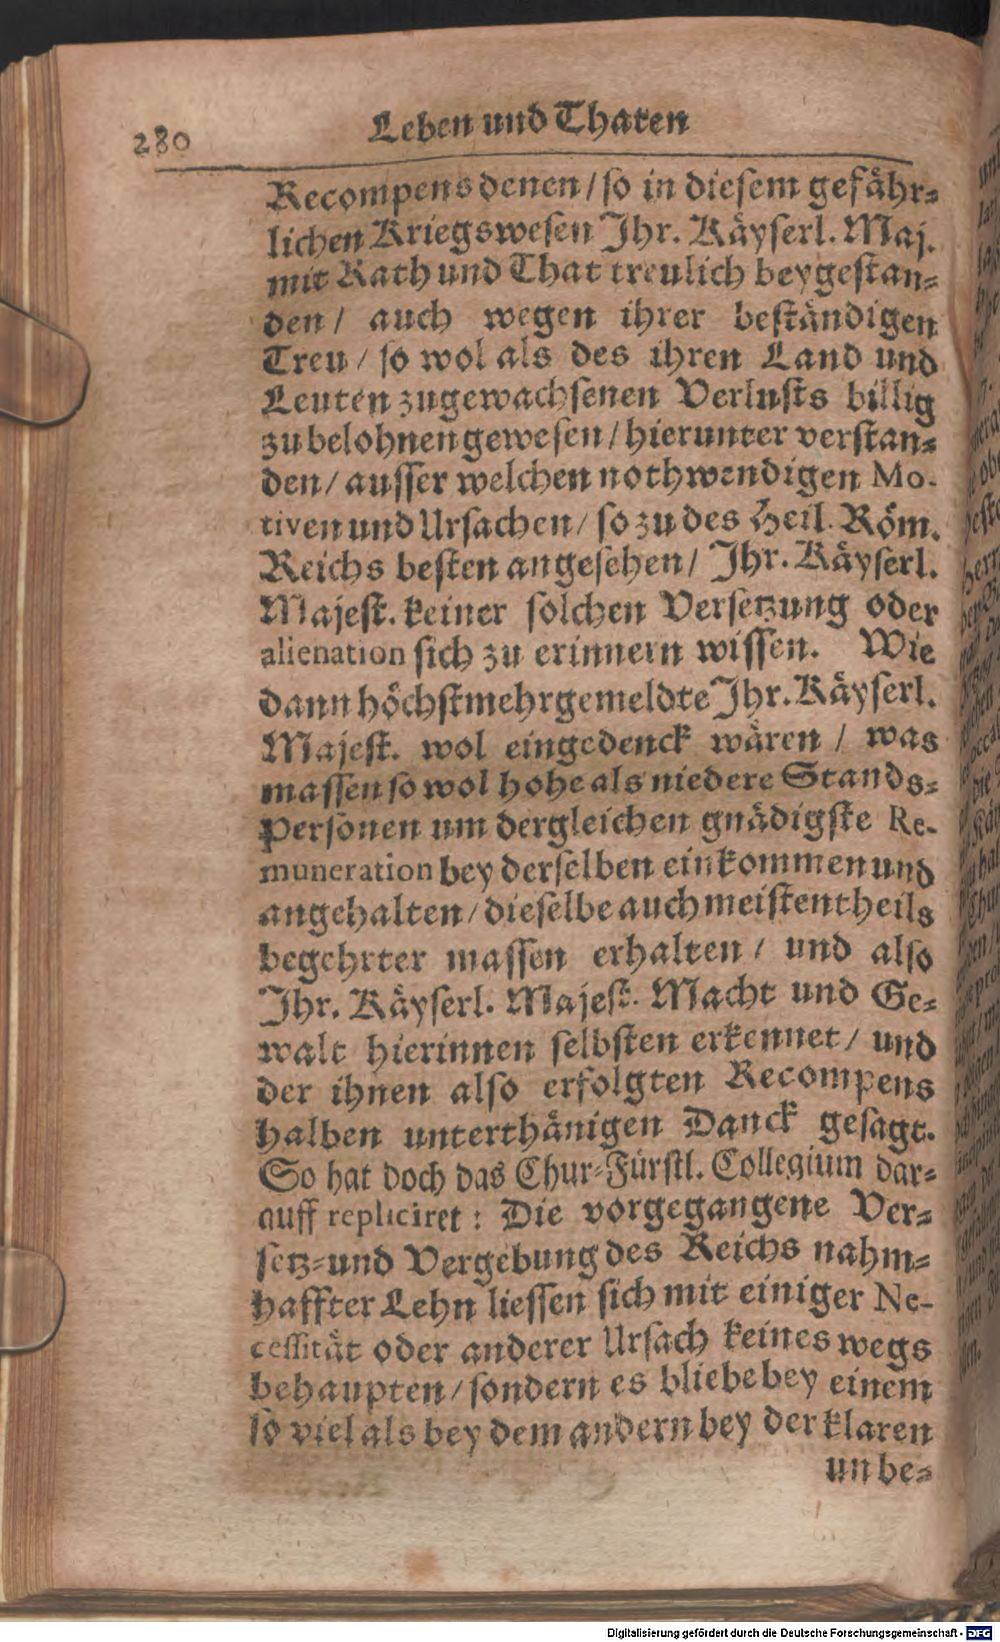 280 Leben und Thaten
Recompens denen / so in diesem gefähr-
lichen Kriegswesen Ihr. Käyserl. Maj.
mit Rath und That treulich beygestan-
den / auch wegen ihrer beständigen
Treu / so wol als des ihren Land und
Leuten zugewachsenen Verlusts billig
zu belohnen gewesen / hierunter verstan-
den / ausser welchen nothwendigen Mo-
tiven und Ursachen / so zu des Heil. Röm.
Reichs besten angesehen / Ihr. Käyserl.
Majest. keiner solchen Versetzung oder
alienation sich zu erinnern wissen. Wie
dann höchstmehrgemeldte Ihr. Käyserl.
Majest. wol eingedenck wären / was
massen so wol hohe als niedere Stands-
Personen um dergleichen gnädigste Re-
muneration bey derselben einkommen und
angehalten / dieselbe auch meistentheils
begehrter massen erhalten / und also
Ihr. Käyserl. Majest. Macht und Ge-
walt hierinnen selbsten erkennet / und
der ihnen also erfolgten Recompens
halben unterthänigen Danck gesagt.
So hat doch das Chur-Fürstl. Collegium dar-
auff repliciret: Die vorgegangene Ver-
setz- und Vergebung des Reichs nahm-
haffter Lehn liessen sich mit einiger Ne-
cessität oder anderer Ursach keines wegs
behaupten / sondern es bliebe bey einem
so viel als bey dem andern bey der klaren
unbe-
Digitalisierung gefördert durch die Deutsche Forschungsgemeinschaft - DFG